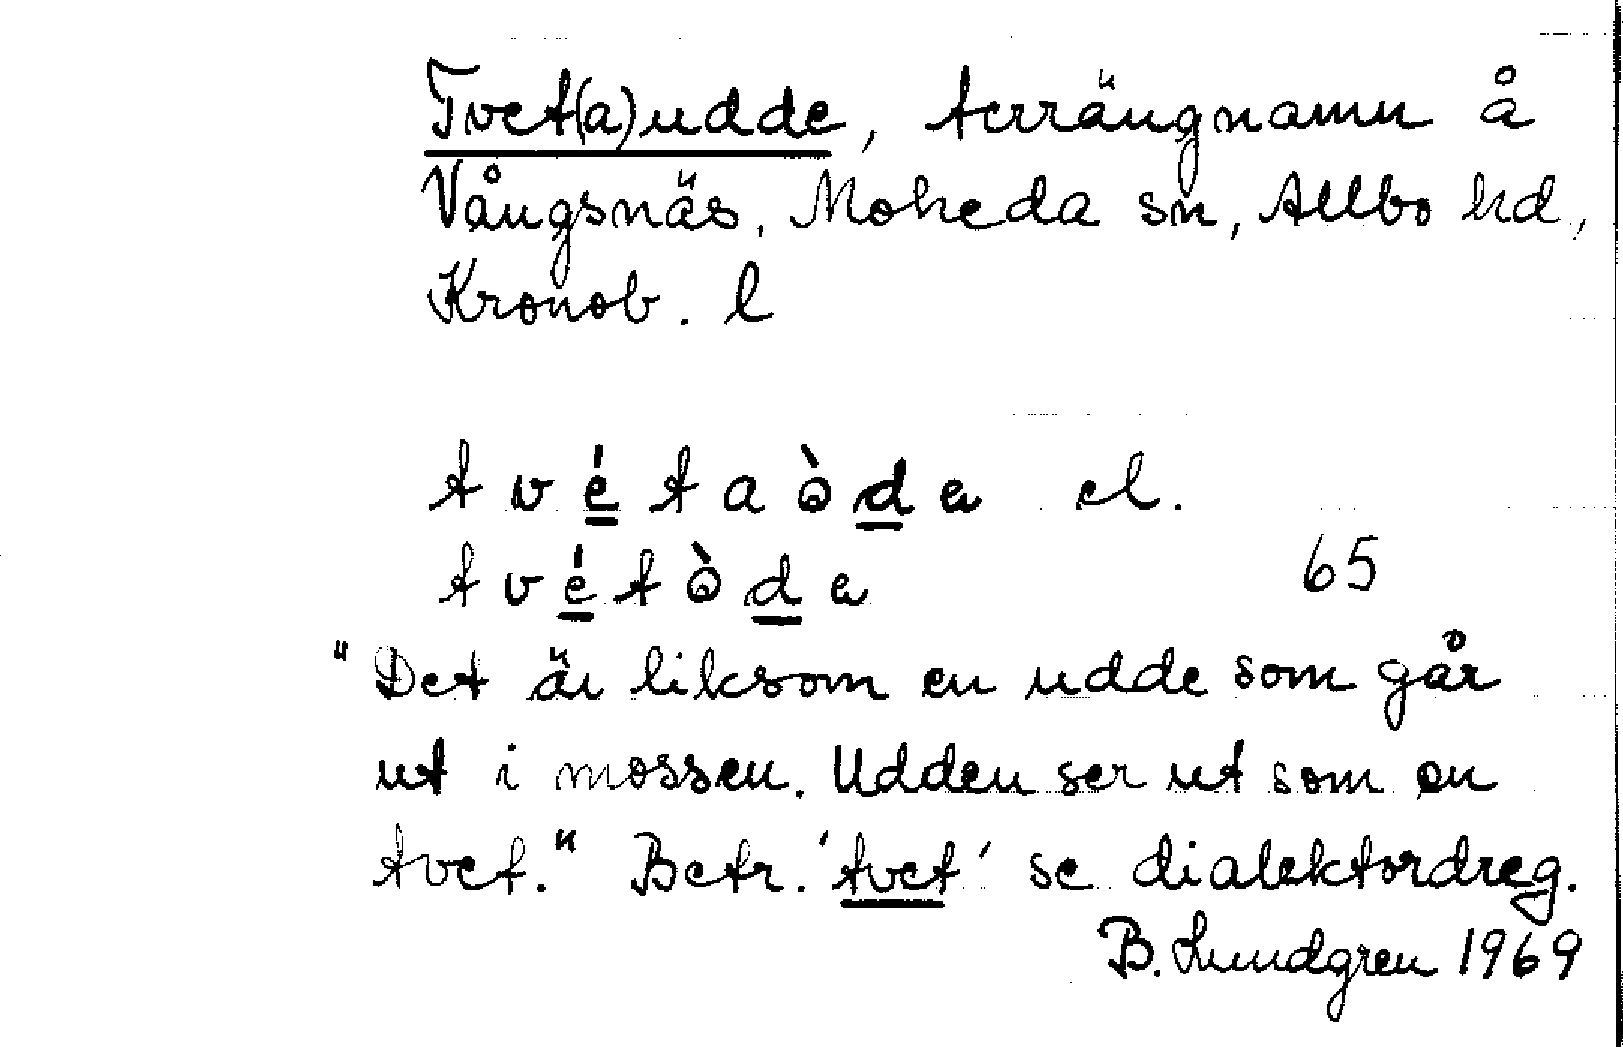 Tvet(a)udde, terrängnamn å
Vångsnäs, Moheda sn, Allbo hd,
Kronob. l
tvétaòdɐ el.
tvétòdɐ 65
"Det är liksom en udde som går
ut i mossen. Udden ser ut som en
tvet." Betr. 'tvet' se dialektordreg.
B. Lundgren 1969